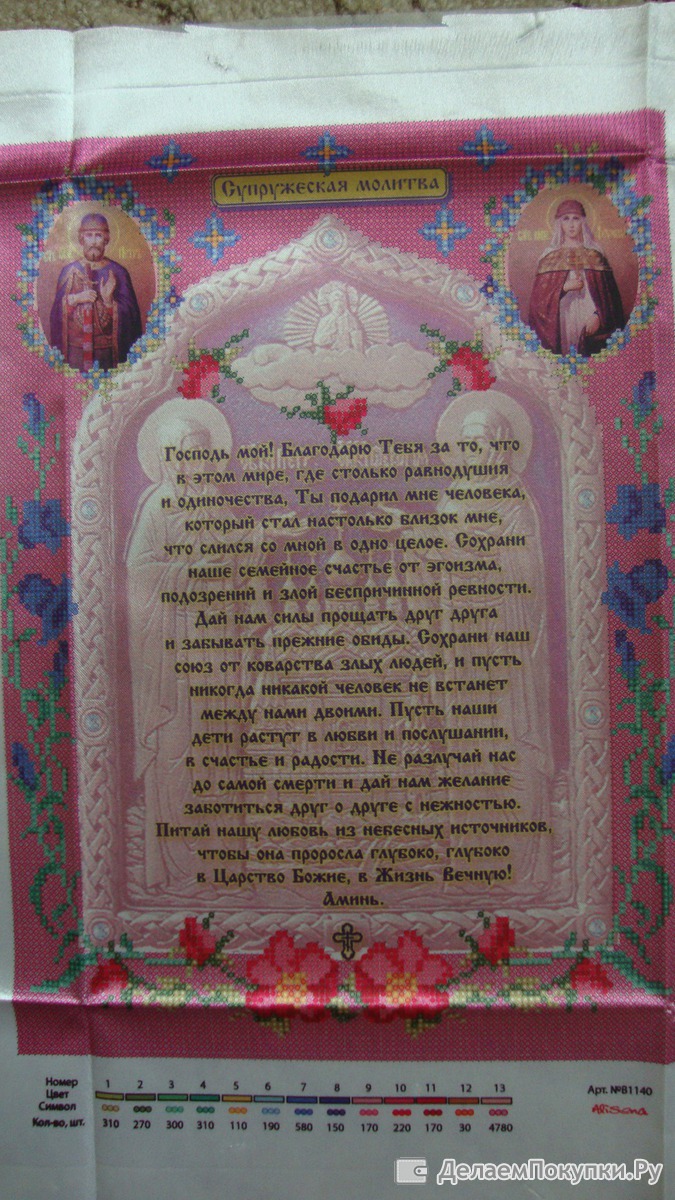 Супружеская молитва
Господь мой! Благодарю Тебя за то, что
в этом мире, где столько равнодушия
и одиночества, Ты подарил мне человека,
который стал настолько близок мне,
что слился со мной в одно целое. Сохрани
наше семейное счастье от эгоизма,
подозрений и злой беспричинной ревности.
Дай нам силы прощать друг друга
и забывать прежние обиды. Сохрани наш
союз от коварства злых людей, и пусть
никогда никакой человек не встанет
между нами двоими. Пусть наши
дети растут в любви и послушании,
в счастье и радости. Не разлучай нас
до самой смерти и дай нам желание
заботиться друг о друге с нежностью.
Питай нашу любовь из небесных источников,
чтобы она проросла глубоко, глубоко
в Царство Божие, в Жизнь Вечную!
Аминь.
Номер 1 2 3 4 5 6 7 8 9 10 11 12 13
Цвет
Символ
Кол-во, шт. 310 270 300 310 110 190 580 150 170 220 170 30 4780
Арт. №В1140
Alisena
ДелаемПокупки.Ру